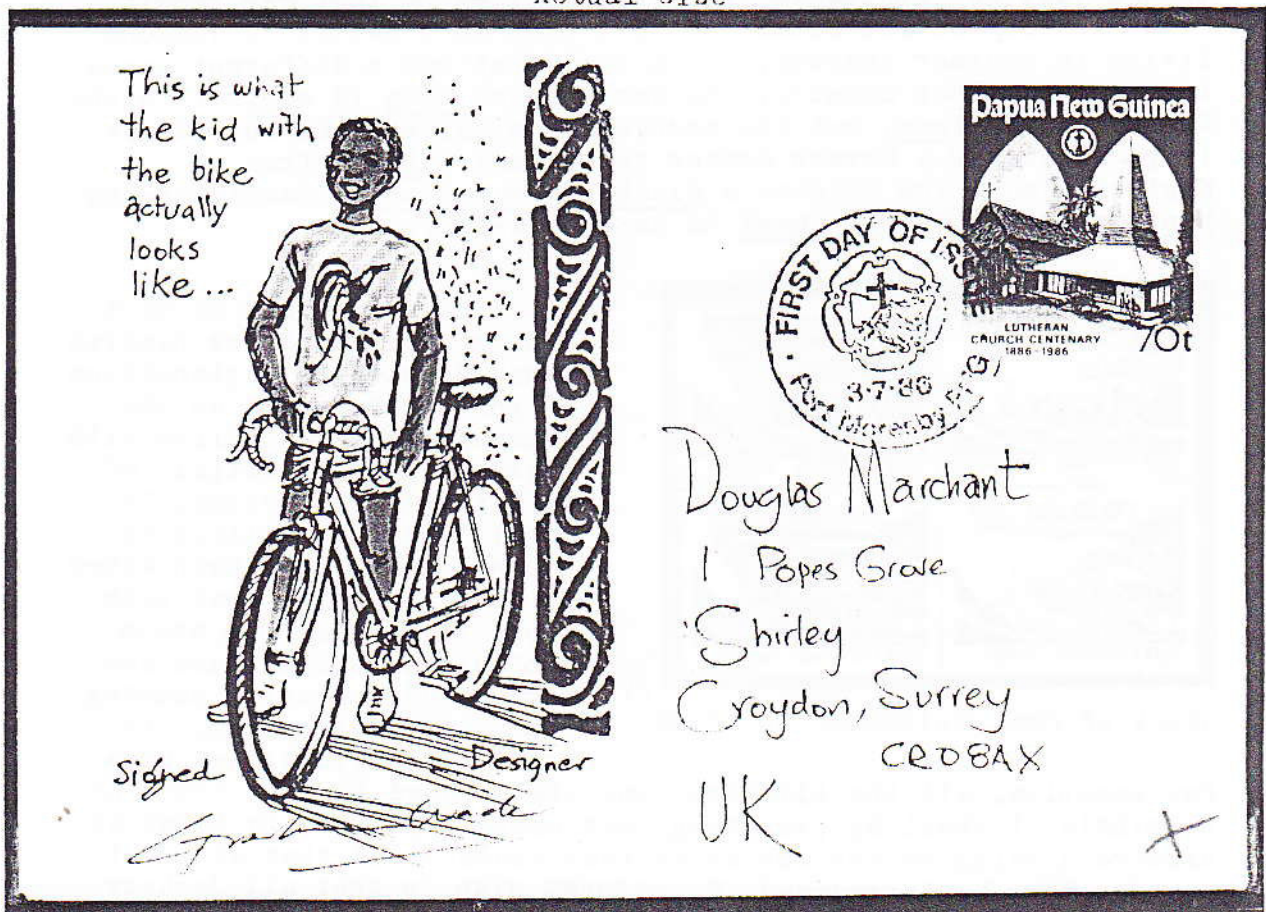 Actual Size
This is what
the kid with
the bike
actually
looks
like ...
Papua New Guinea
LUTHERAN
CHURCH CENTENARY
1886-1986
70t
FIRST DAY OF ISSUE
3·7·86
Port Moresby P.N.G.
Douglas Marchant
1 Popes Grove
Shirley
Croydon, Surrey
CR0 8AX
UK
Signed
Designer
Wade